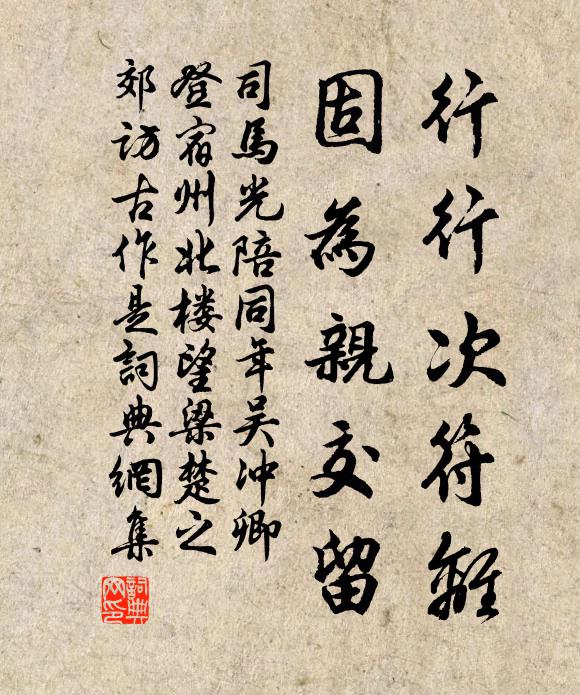 行行次符離
固為親交留
司馬光陪同年吴冲卿
登宿州北楼望梁楚之
郊访古作是詞典網集
詞典